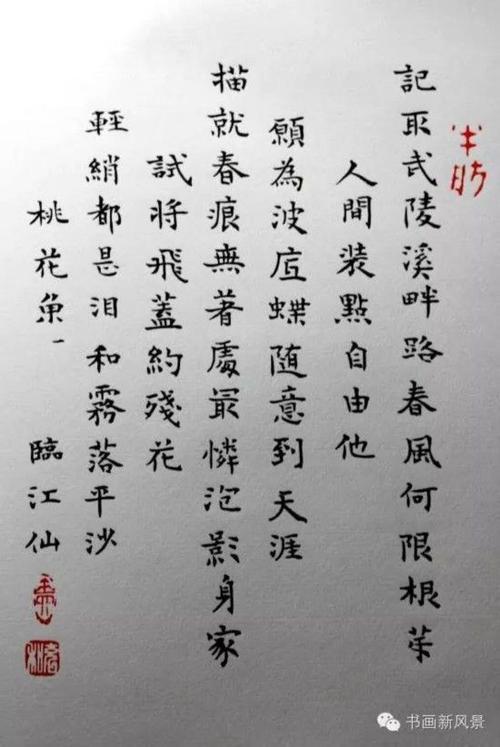 記取武陵溪畔路春風何限根芽
人間装點自由他
願為波底蝶随意到天涯
描就春痕無著處最憐泡影身家
試將飛蓋約殘花
輕綃都是泪和霧落平沙
桃花魚一 臨江仙
书画新风景